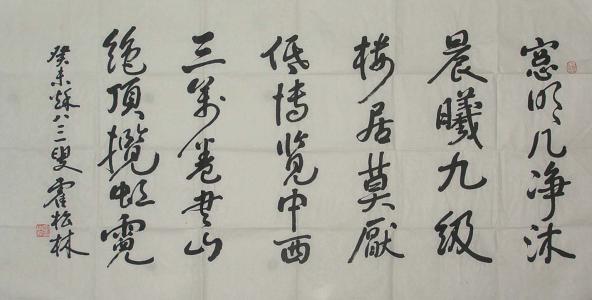 窓明几净沐
晨曦九级
楼居莫厭
低博览中西
三萬卷书山
绝顶揽虹霓
癸未秋八三叟霍松林